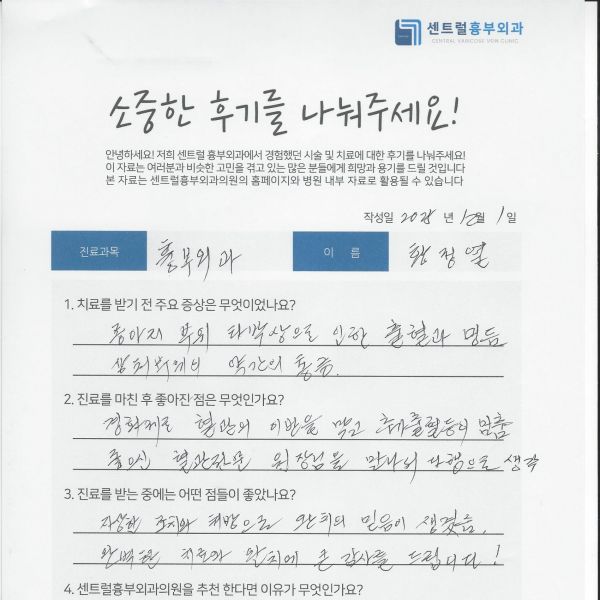 센트럴흉부외과
CENTRAL VARICOSE VEIN CLINIC
소중한 후기를 나눠주세요!
안녕하세요! 저희 센트럴 흉부외과에서 경험했던 시술 및 치료에 대한 후기를 나눠주세요!
이 자료는 여러분과 비슷한 고민을 겪고 있는 많은 분들에게 희망과 용기를 드릴 것입니다
본 자료는 센트럴흉부외과의원의 홈페이지와 병원 내부 자료로 활용될 수 있습니다
작성일 2025 년 12월 1일
진료과목 흉부외과 이 름 황정열
1. 치료를 받기 전 주요 증상은 무엇이었나요?
종아리 부위 타박상으로 인한 출혈과 멍듬
부위의 약간의 통증.
2. 진료를 마친 후 좋아진 점은 무엇인가요?
경화제로 혈관의 이반을 막고 추가출혈등이 멈춤
좋으신 혈관전문 원장님을 만나서 다행으로 생각
3. 진료를 받는 중에는 어떤 점들이 좋았나요?
자상한 조치와 처방으로 완치의 믿음이 생겼음.
완벽한 치료와 완치에 큰 감사를 드립니다!
4. 센트럴흉부외과의원을 추천 한다면 이유가 무엇인가요?